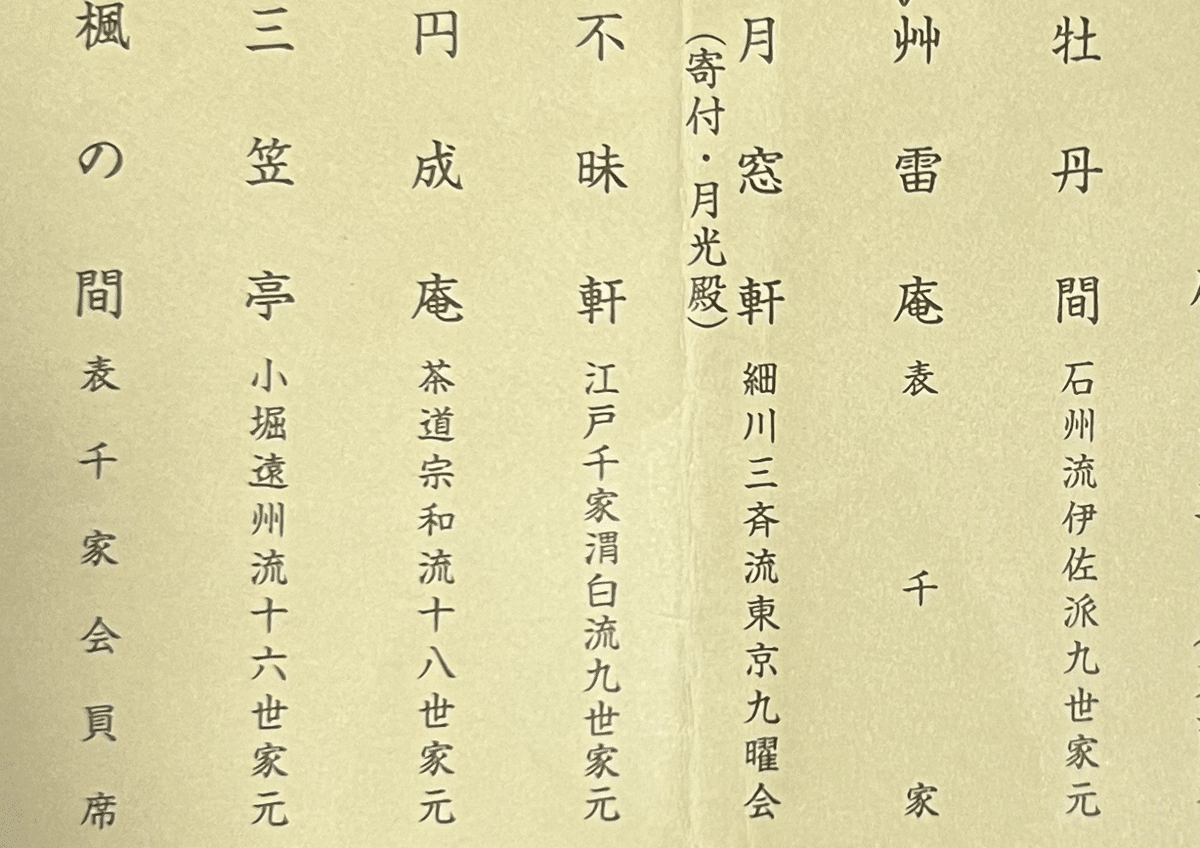 牡丹間 石州流伊佐派九世家元
艸雷庵 表千家
月窓軒 細川三斉流東京九曜会
（寄付・月光殿）
不昧軒 江戸千家渭白流九世家元
円成庵 茶道宗和流十八世家元
三笠亭 小堀遠州流十六世家元
楓の間 表千家会員席